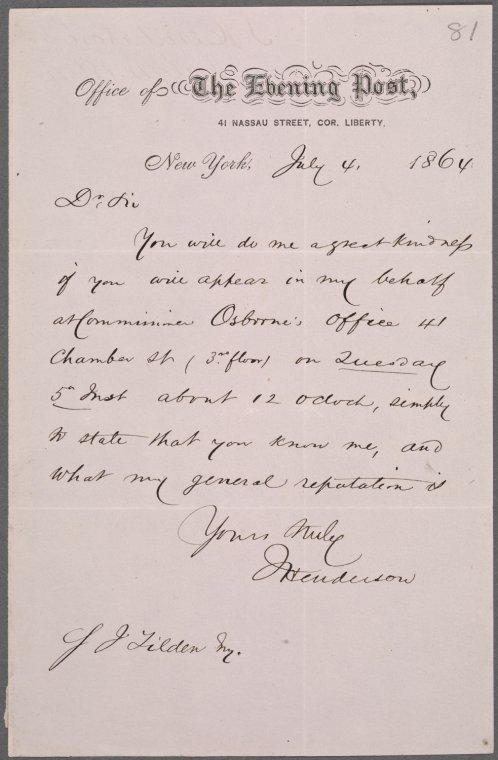 81
Office of The Evening Post,
41 NASSAU STREET, COR. LIBERTY,
New York, July 4, 1864
Dr. Sir
You will do me a great kindness
if you will appear in my behalf
at Commissioner Osborne's office 41
Chamber St ( 3rd floor) on Tuesday
5th Inst about 12 oclock, simply
to state that you know me, and
what my general reputation is
Yours truly
J Henderson
S J Tilden Esq.